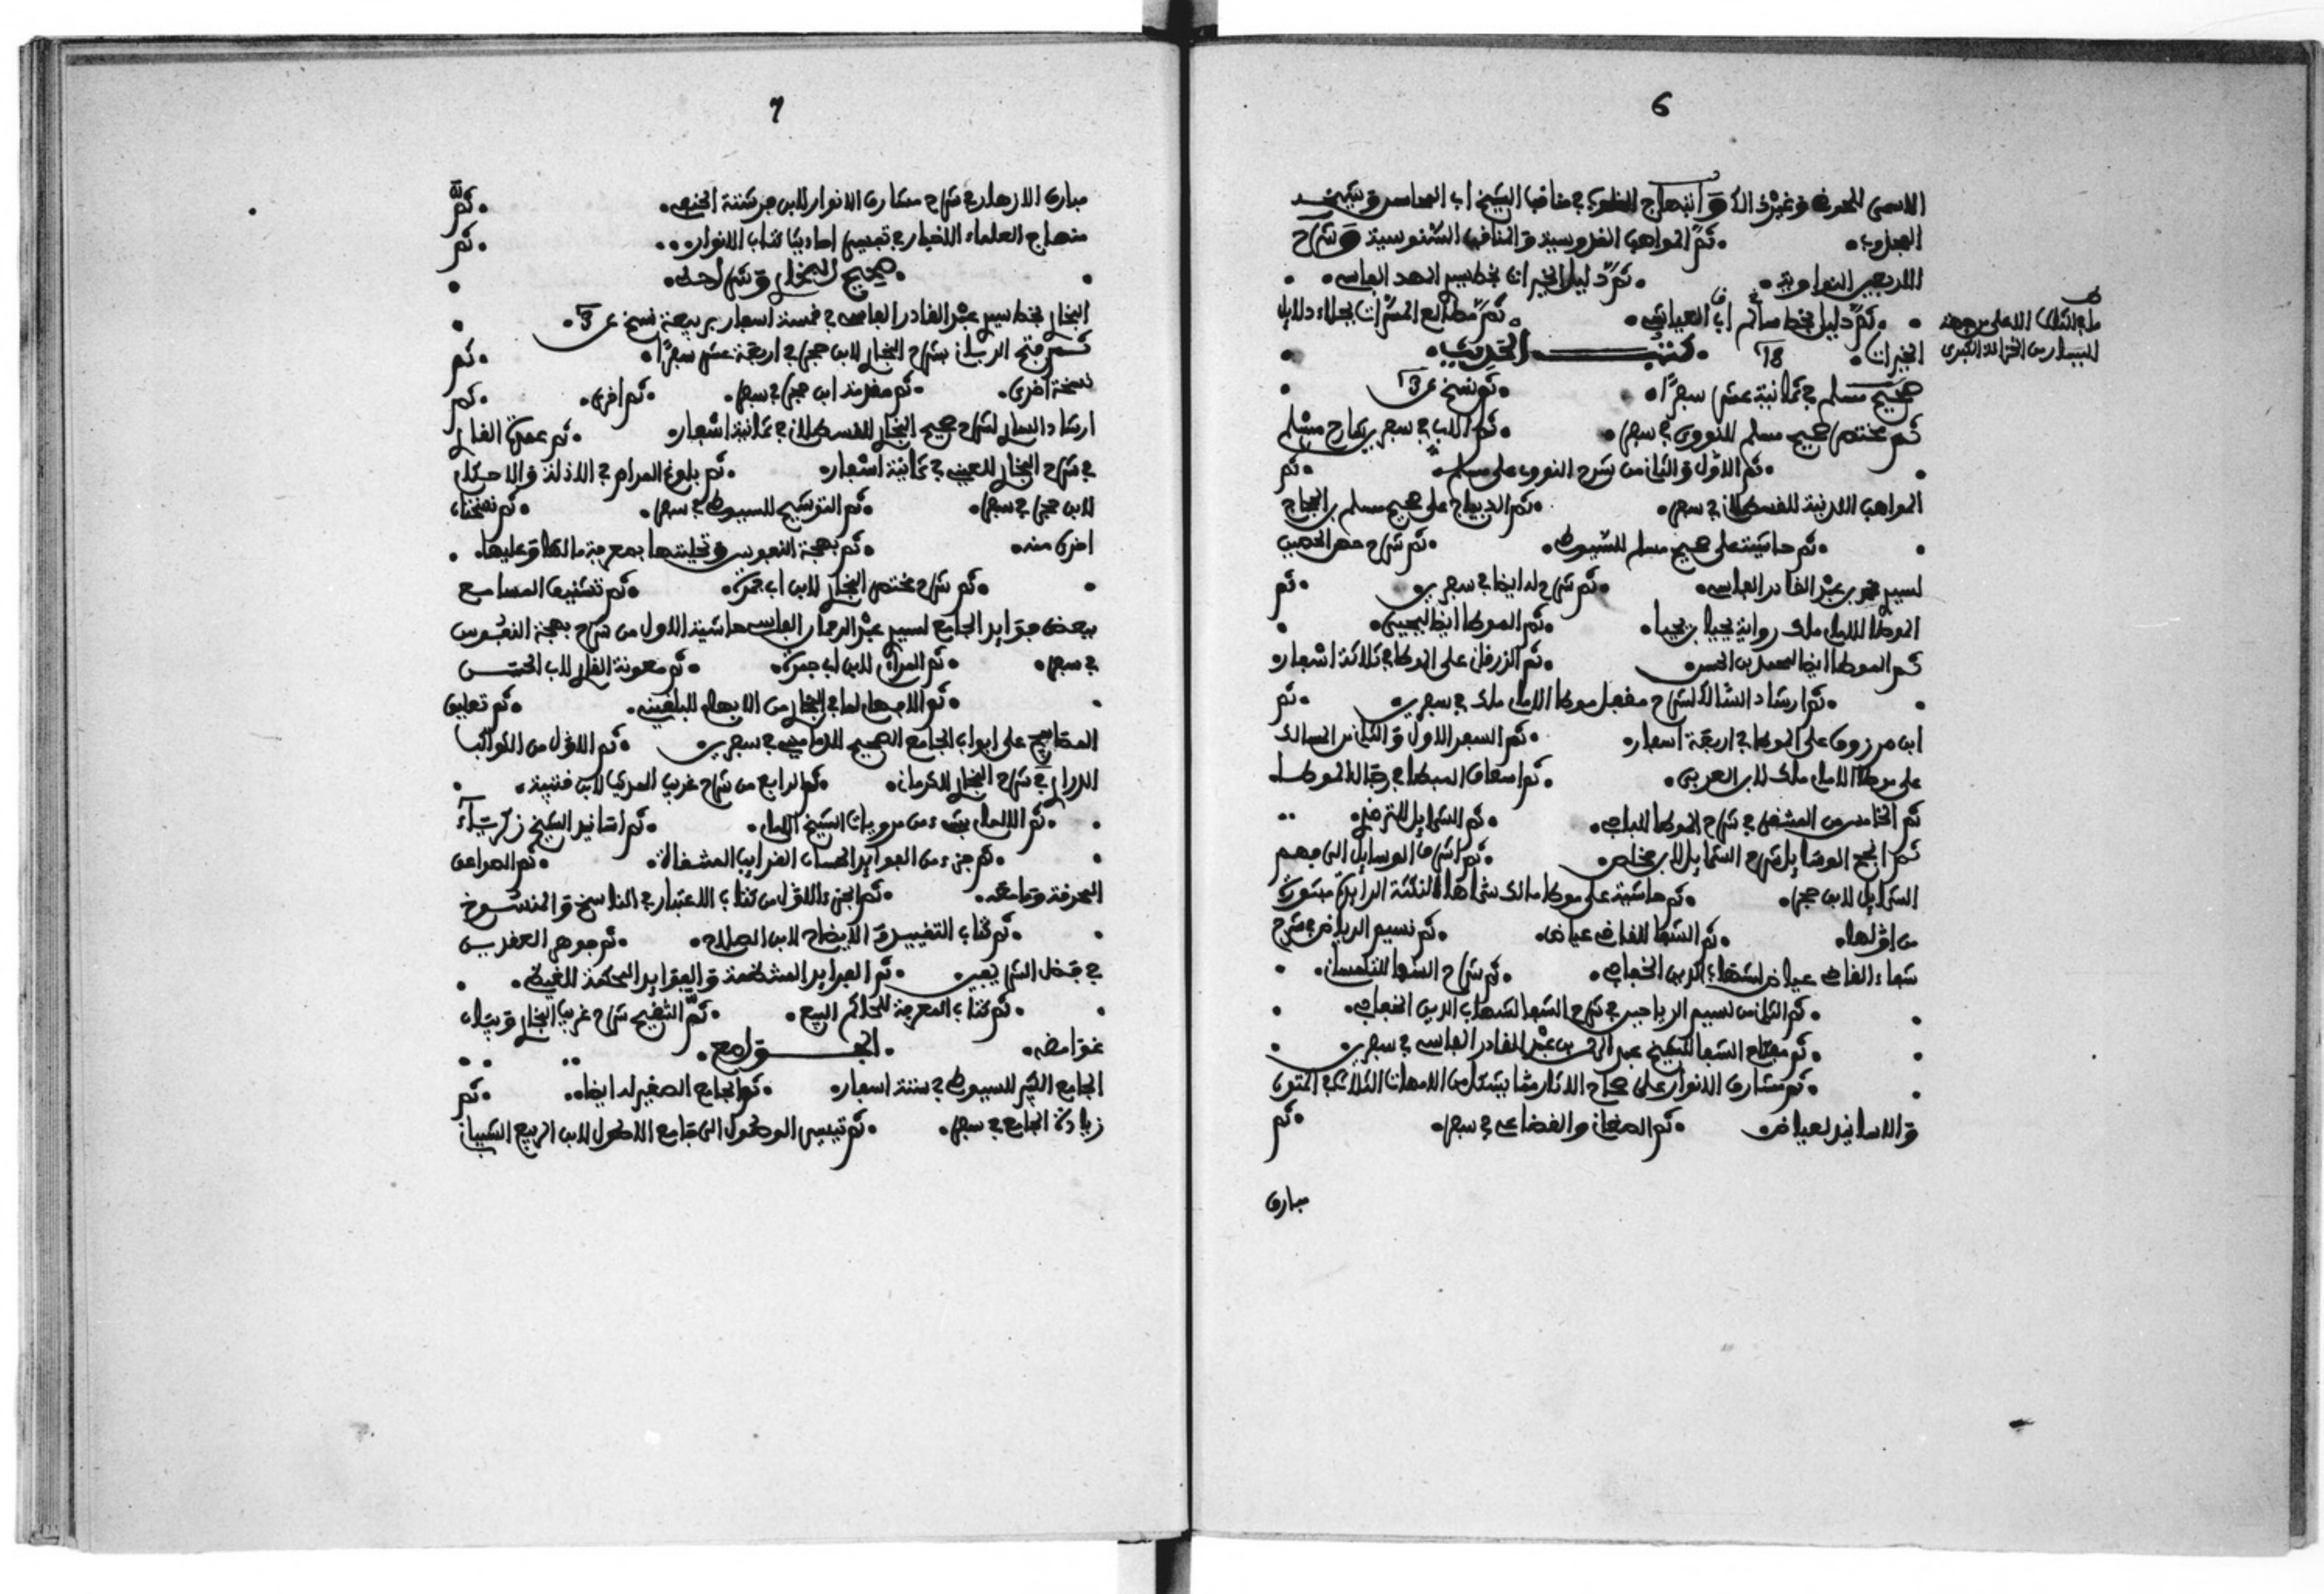 6
ثم المواهب القدوسية والمناقب السنوسية وشرح
الاربعين النواوية. ثم دليل الخيرات بخط سيد المهد الفاسي.
ثم دليل بخط سالم ثم مطالع المسرات بجلاء دلايل
الخيرات. 18 كتب الحديث.
صحيح مسلم في ثمانية عشر سفرا. ثم نسخ عـ13ـدد
ثم مختصر صحيح مسلم للنووي في سفر. ثم الاب في سفرين شارح مسلم
ثم الاول والثاني من شرح النووي على مسلم. ثم
المواهب اللدنية للقسطلاني في سفر. ثم الديباج على صحيح مسلم بن الحجاج
ثم حاشية على صحيح مسلم للسيوطي. ثم شرح حصن الحصين
لسيد محمد بن عبد القادر الفاسي. ثم شرح له ايضا في سفرين. ثم
الموطا للامام ملك رواية يحيا بن يحيا. ثم الموطا ايضا ليحيى.
ثم الموطا ايضا لمحمد بن الحسن ثم الزرقاني على الموطا في ثلاثة اسفار
ثم ارشاد السالك لشرح مقفل موطا الامام ملك في سفرين. ثم
ابن مرزوق على الموطا في اربعة اسفار. ثم السفر الاول والثاني من المسالك
على موطا الامام ملك لابن العربي. ثم اسعاف المبطا في رجال الموطا
ثم الخامس من المنتقى في شرح الموطا للباجي. ثم الشمايل للترمذي.
ثم انجح الوسايل شرح الشمايل لابن مخلص. ثم اشرف الوسايل الى فهم
الشمايل لابن حجر. ثم حاشية على موطا مالك سماها النكتة الرايقة مبتورة
من اولها. ثم الشفا للقاضي عياض. ثم نسيم الرياض في شرح
شفاء القاضي عياض لشهاب الدين الخفاجي. ثم شرح الشفا للتلمساني.
ثم الثاني من نسيم الرياض في شرح الشفا لشهاب الدين الخفاجي.
ثم مفتاح الشفا للشيخ عبد الرحمن بن عبد القادر الفاسي في سفرين.
ثم مشارق الانوار على صحاح الاثار مما يشكل من الامهات الثلاث في المتون
والاسانيد لعياض ثم الصغاني والقضاعي في سفر. ثم
مبارق
7
مبارق الازهار في شرح مشارق الانوار لابن فرشتة الحنفي. ثم
منهاج العلماء الاخيار في تفسير احاديث كتاب الانوار. ثم
صحيح البخاري وشراحه.
البخاري بخط سيد عبد القادر الفاسي في خمسة اسفار
ثم فتح الباري بشرح البخاري لابن حجر في اربعة عشر سفرا. ثم
نسخة اخرى. ثم مقدمة ابن حجر في سفر. ثم اخرى. ثم
ارشاد الساري لشرح صحيح البخاري للقسطلاني في ثمانية اسفار. ثم عمدة القاري
في شرح البخاري للعيني في ثمانية اسفار. ثم بلوغ المرام في الادلة والاحكام
لابن حجر في سفر. ثم التوشيح للسيوطي في سفر. ثم نسختان
اخرى منه. ثم بهجة النفوس وتحليتها بمعرفة ما لها وعليها.
ثم شرح مختصر البخاري لابن ابي جمرة. ثم تشنيف المسامع
ببعض فوايد الجامع لسيد عبد الرحمان الفاسي حاشية الاول من شرح بهجة النفوس
في سفر. ثم المرائي لابن ابي جمرة. ثم معونة القاري لاب الحسن
ثم الافهام لما في البخاري من الابهام للبلقيني. ثم تعليق
المصابيح على ابواب الجامع الصحيح للدماميني في سفرين ثم الاول من الكواكب
الدراري في شرح البخاري للكرماني. ثم الرابع من شرح غريب الحديث لابن قتيبة.
ثم الالمام بشيء من مرويات الشيخ الامام. ثم اسانيد الشيخ زكرياء
ثم جزء من الفوايد الحسان الغرايب المنتقاة. ثم الصواعق
المحرقة وتمامه. ثم الجزء الاول من كتاب الاعتبار في الناسخ والمنسوخ
ثم كتاب التقييد والايضاح لابن الصلاح. ثم جوهر العقدين
في فضل الشريفين ثم الفرايد المنظمة والفوايد المحكمة للغيطي.
ثم كتاب المعرفة للحاكم البيع. ثم التنقيح شرح غريب البخاري وبيان
غوامضه. الجوامع.
الجامع الكبير للسيوطي في ستة اسفار. ثم الجامع الصغير له ايضا. ثم
زيادة الجامع في سفر. ثم تيسير الوصول الى جامع الاصول لابن الربيع الشيباني